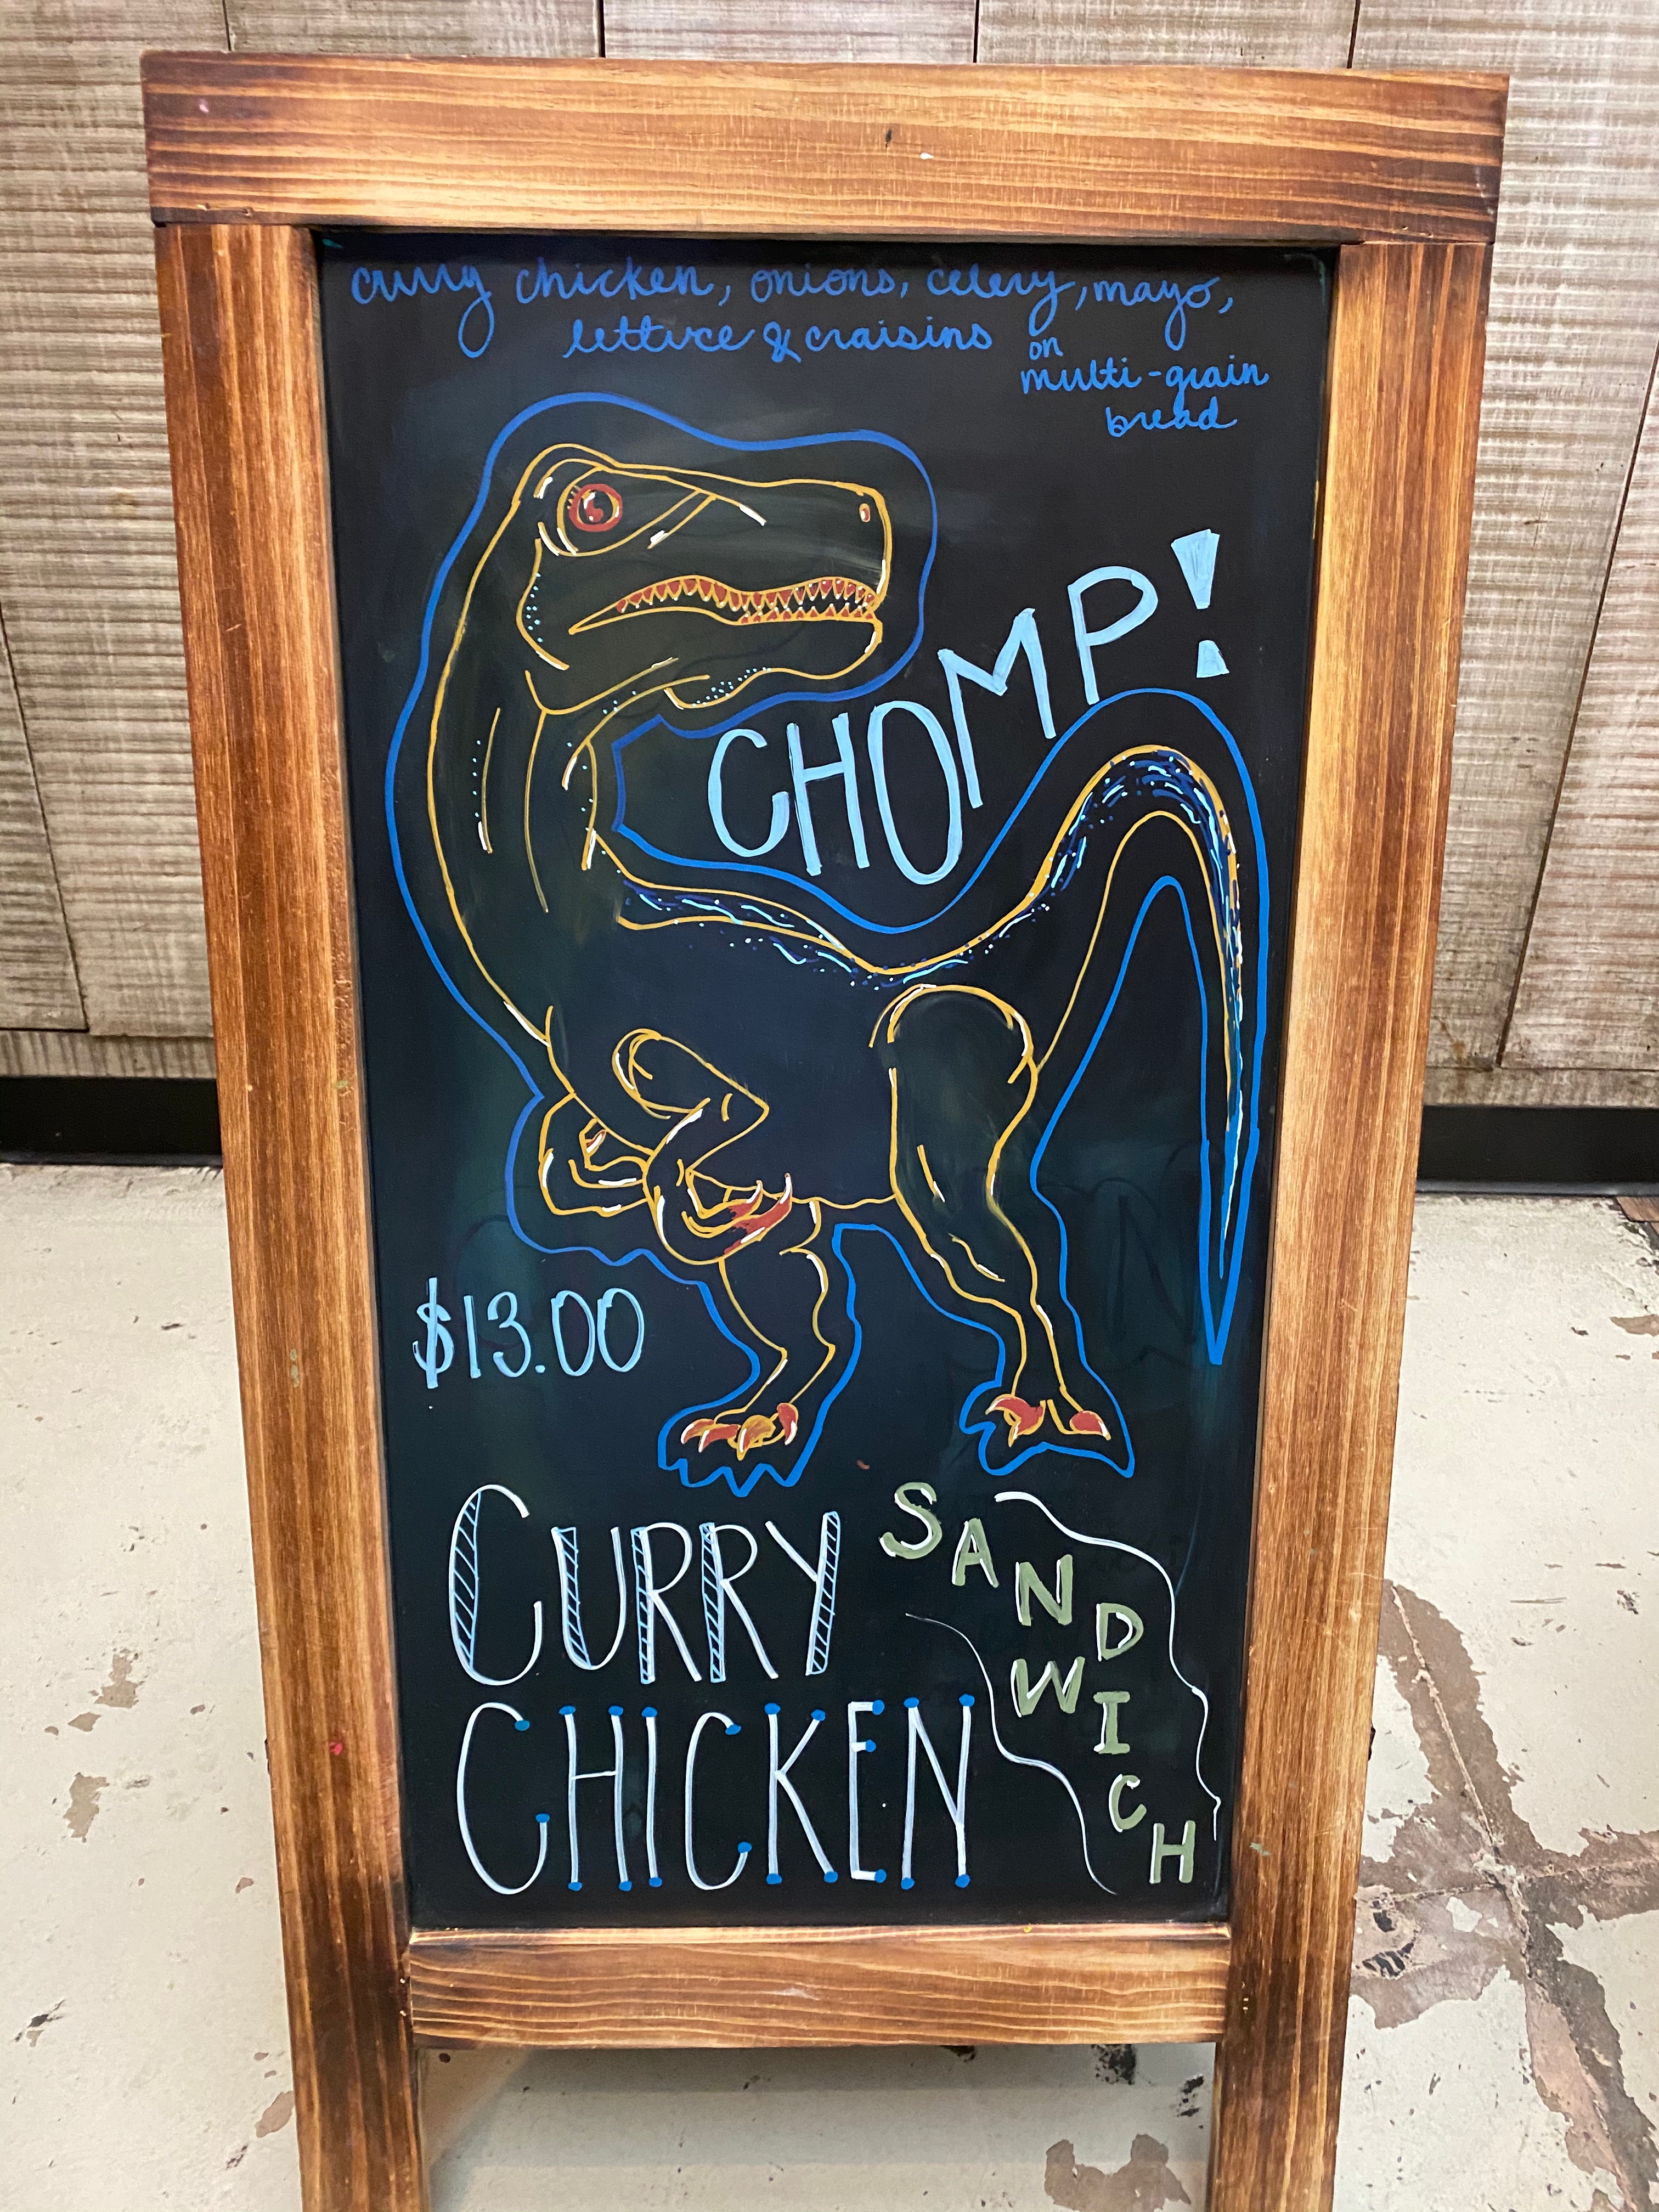 curry chicken, onions, celery, mayo,
lettuce & craisins on
multi-grain
bread
CHOMP!
$13.00
CURRY
CHICKEN
SANDWICH